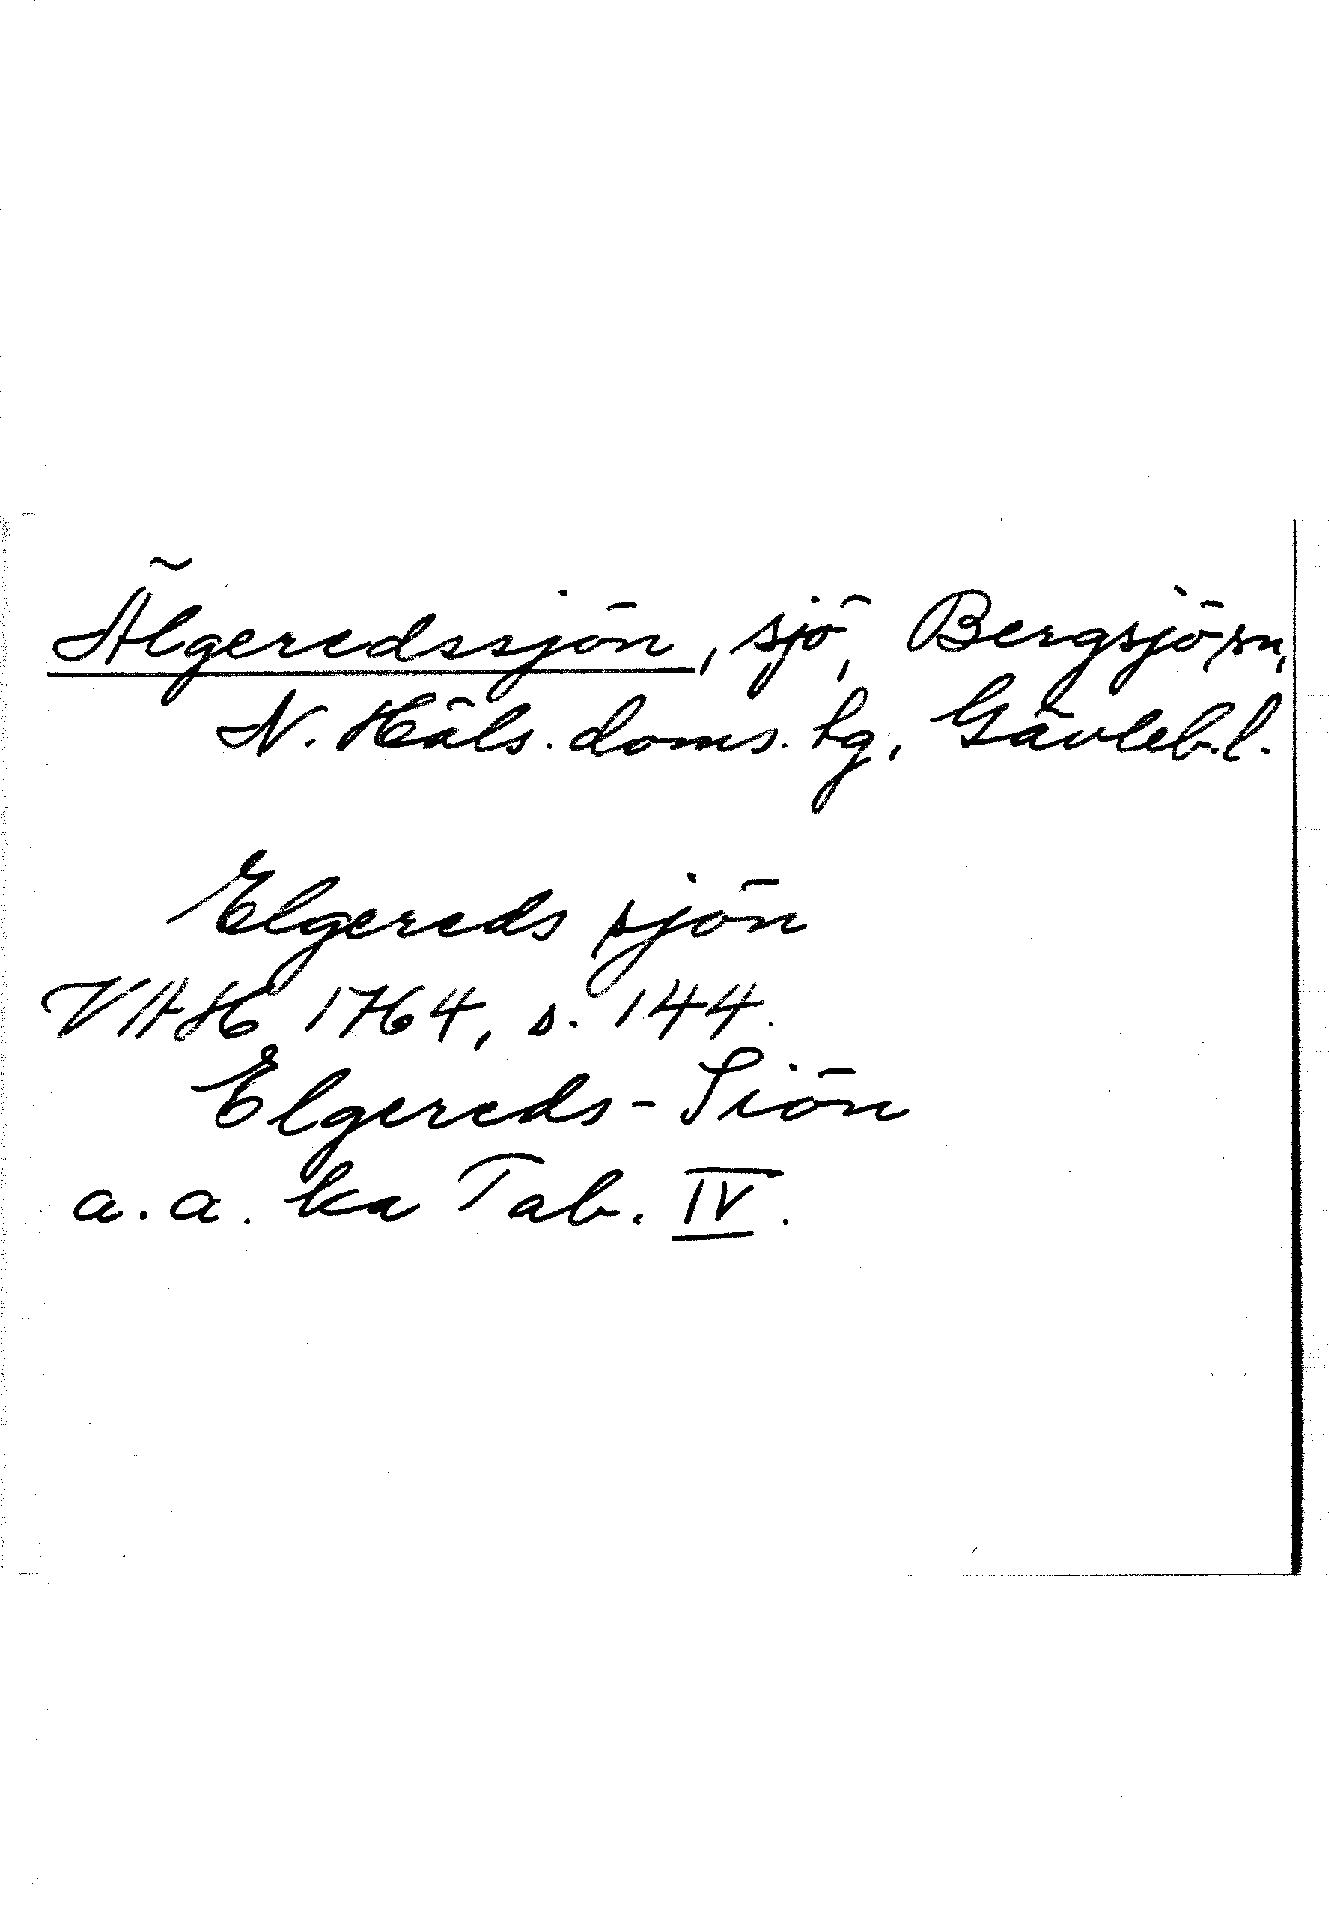 Älgeredssjön, sjö, Bergsjö sn,
N. Häls. doms. hg, Gävleb. l.
Elgereds sjön
VAH 1764, s. 144.
Elgereds-Siön
a. a. ka Tab. IV.